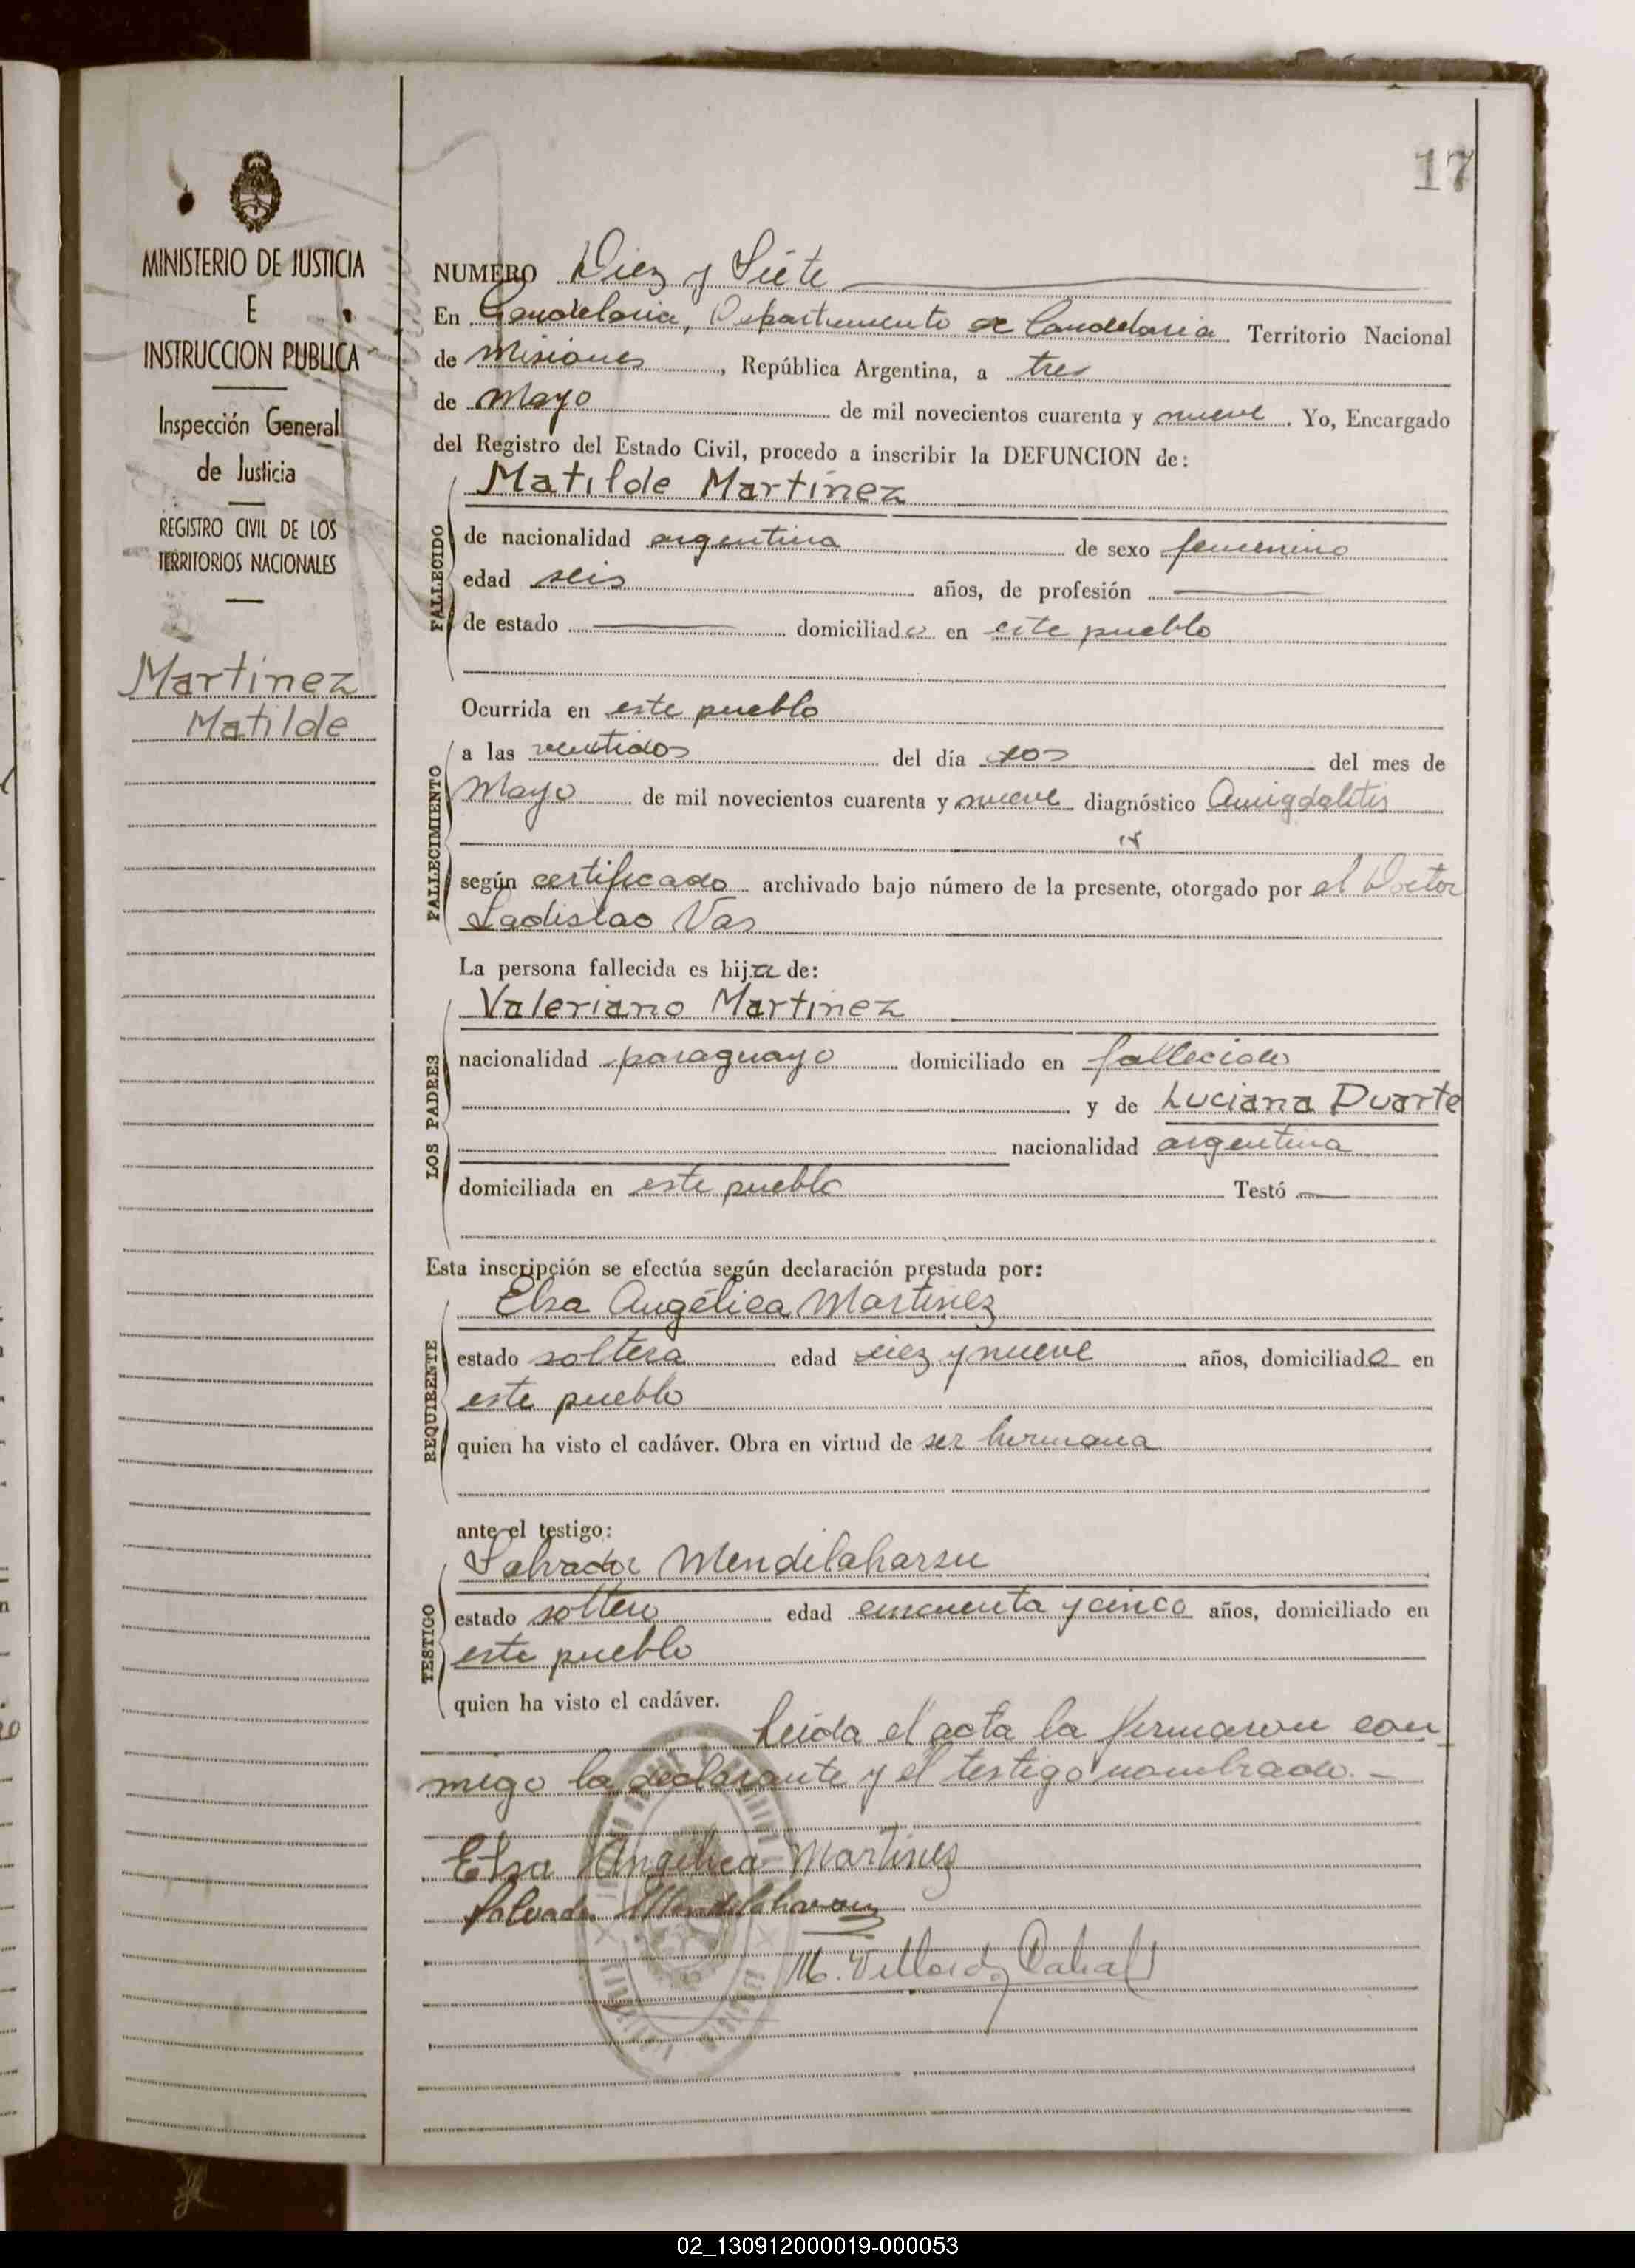 17
MINISTERIO DE JUSTICIA
E
INSTRUCCION PUBLICA
Inspección General
de Justicia
REGISTRO CIVIL DE LOS
TERRITORIOS NACIONALES
Martinez
Matilde
NUMERO Diez y Siete
En Candelaria, Departamento de Candelaria Territorio Nacional
de Misiones, República Argentina, a tres
de Mayo de mil novecientos cuarenta y nueve. Yo, Encargado
del Registro del Estado Civil, procedo a inscribir la DEFUNCION de:
FALLECIDO
Matilde Martinez
de nacionalidad argentina de sexo femenino
edad seis años, de profesión
de estado domiciliada en este pueblo
FALLECIMIENTO
Ocurrida en este pueblo
a las veintidos del día dos del mes de
Mayo de mil novecientos cuarenta y nueve diagnóstico Amigdalitis
según certificado archivado bajo número de la presente, otorgado por el Doctor
Ladislao Vas
LOS PADRES
La persona fallecida es hija de:
Valeriano Martinez
nacionalidad paraguayo domiciliado en fallecido
y de Luciana Duarte
nacionalidad argentina
domiciliada en este pueblo Testó
Esta inscripción se efectúa según declaración prestada por:
REQUIRENTE
Elsa Angélica Martinez
estado soltera edad diez y nueve años, domiciliada en
este pueblo
quien ha visto el cadáver. Obra en virtud de ser hermana
ante el testigo:
TESTIGO
Salvador Mendilaharsu
estado soltero edad cincuenta y cinco años, domiciliado en
este pueblo
quien ha visto el cadáver.
Leida el acta la firmaron con
migo la declarante y el testigo nombrado.-
Elsa Angélica Martinez
Salvador Mendilaharsu
02_130912000019-000053